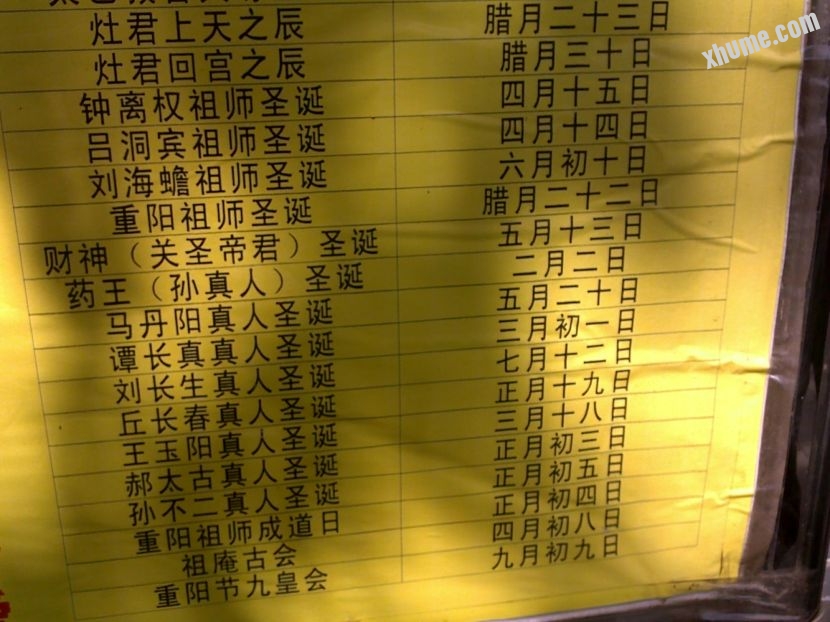 灶君上天之辰 腊月二十三日
灶君回宫之辰 腊月三十日
钟离权祖师圣诞 四月十五日
吕洞宾祖师圣诞 四月十四日
刘海蟾祖师圣诞 六月初十日
重阳祖师圣诞 腊月二十二日
财神（关圣帝君）圣诞 五月十三日
药王（孙真人）圣诞 二月二日
马丹阳真人圣诞 五月二十日
谭长真真人圣诞 三月初一日
刘长生真人圣诞 七月十二日
丘长春真人圣诞 正月十九日
王玉阳真人圣诞 三月十八日
郝太古真人圣诞 正月初三日
孙不二真人圣诞 正月初五日
重阳祖师成道日 正月初四日
祖庵古会 四月初八日
重阳节九皇会 九月初九日
xhume.com